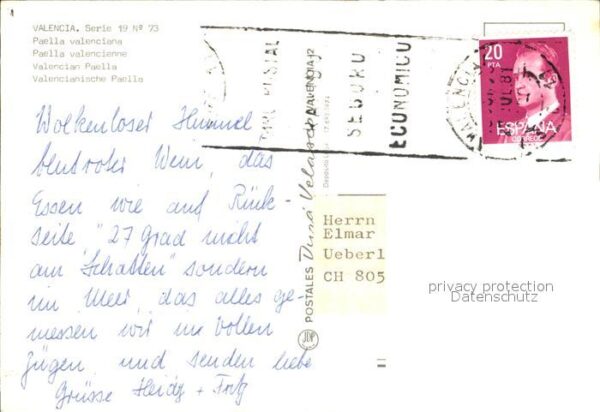 VALENCIA. Serie 19 Nº 73
Paella valenciana
Paella valencienne
Valencian Paella
Valencianische Paella
Wolkenloser Himmel
blutroter Wein, das
Essen wie auf Rück-
seite "27 Grad nicht
am "Schatten" sondern
im Meer, das alles ge-
niessen wir in vollen
Zügen, und senden liebe
Grüsse Heidz + Fritz
POSTAL
SEGURO
ECONOMICO
VALENCIA
JUL.81
20
PTA
ESPAÑA
CORREOS
POSTALES
VALENCIA-12
Herrn
Elmar
Ueberl
CH 805
privacy protection
Datenschutz